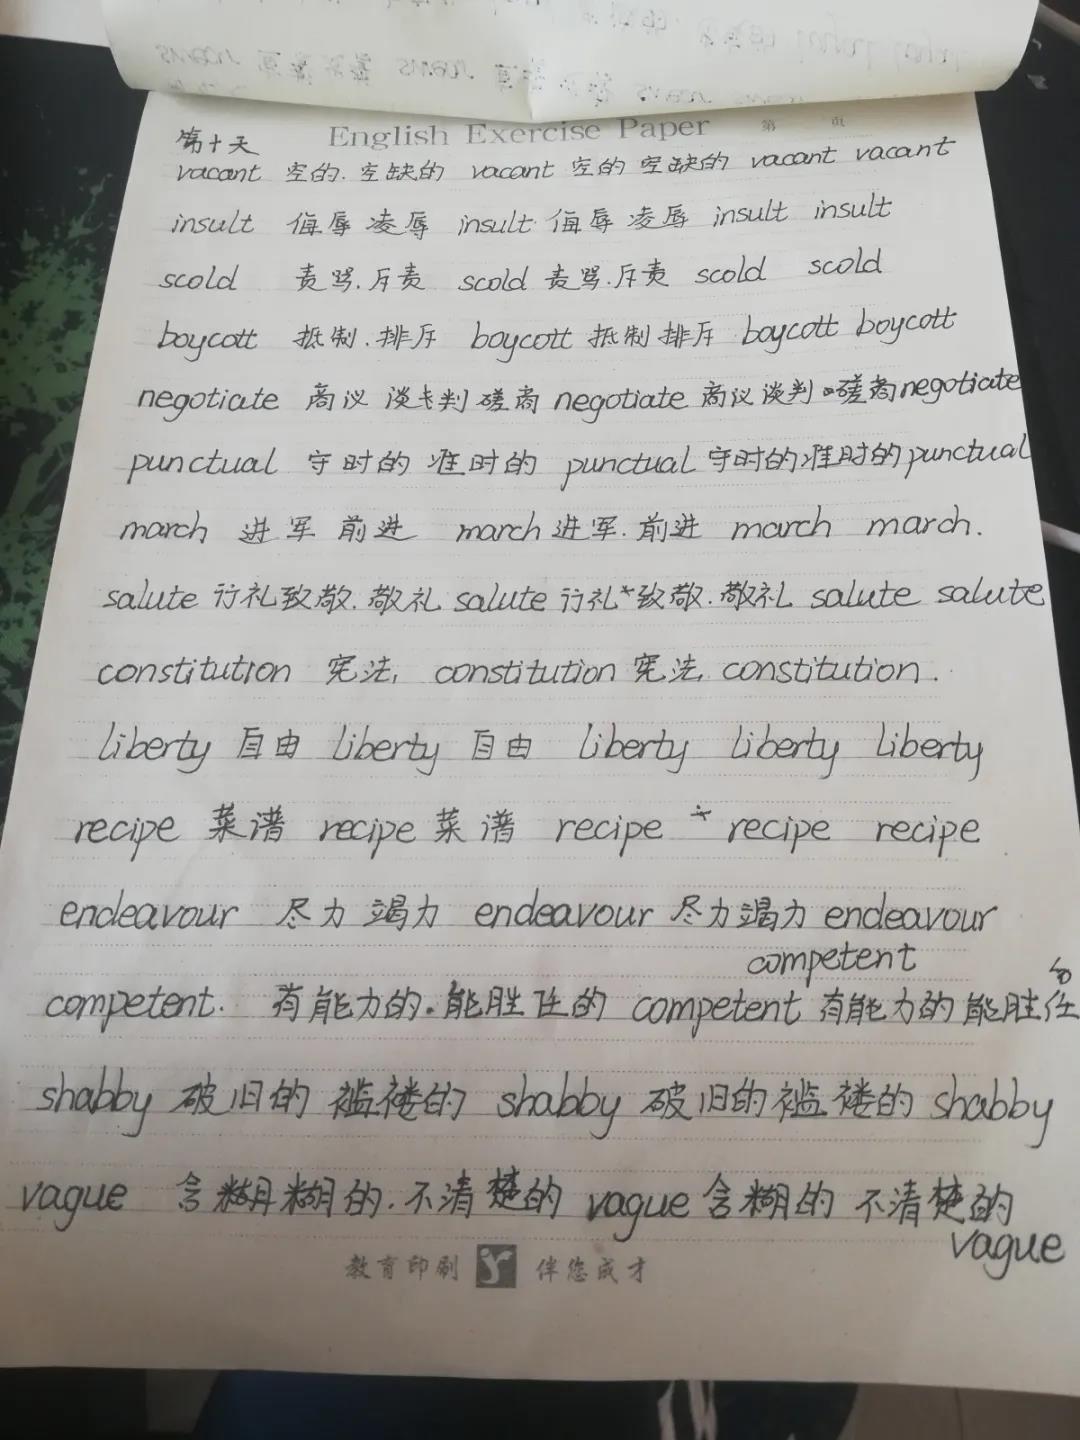 English Exercise Paper 第 页
第十天
vacant 空的.空缺的 vacant 空的 空缺的 vacant vacant
insult 侮辱 凌辱 insult 侮辱 凌辱 insult insult
scold 责骂.斥责 scold 责骂.斥责 scold scold
boycott 抵制.排斥 boycott 抵制 排斥 boycott boycott
negotiate 商议 谈判 磋商 negotiate 商议 谈判 磋商 negotiate
punctual 守时的 准时的 punctual 守时的 准时的 punctual
march 进军 前进 march 进军.前进 march march.
salute 行礼致敬.敬礼 salute 行礼致敬.敬礼 salute salute
constitution 宪法, constitution 宪法, constitution.
liberty 自由 liberty 自由 liberty liberty liberty
recipe 菜谱 recipe 菜谱 recipe recipe recipe
endeavour 尽力 竭力 endeavour 尽力 竭力 endeavour
competent
competent. 有能力的.能胜任的 competent 有能力的 能胜任的
shabby 破旧的 褴褛的 shabby 破旧的 褴褛的 shabby
vague 含糊糊的.不清楚的 vague 含糊的 不清楚的
vague
教育印刷 伴您成才